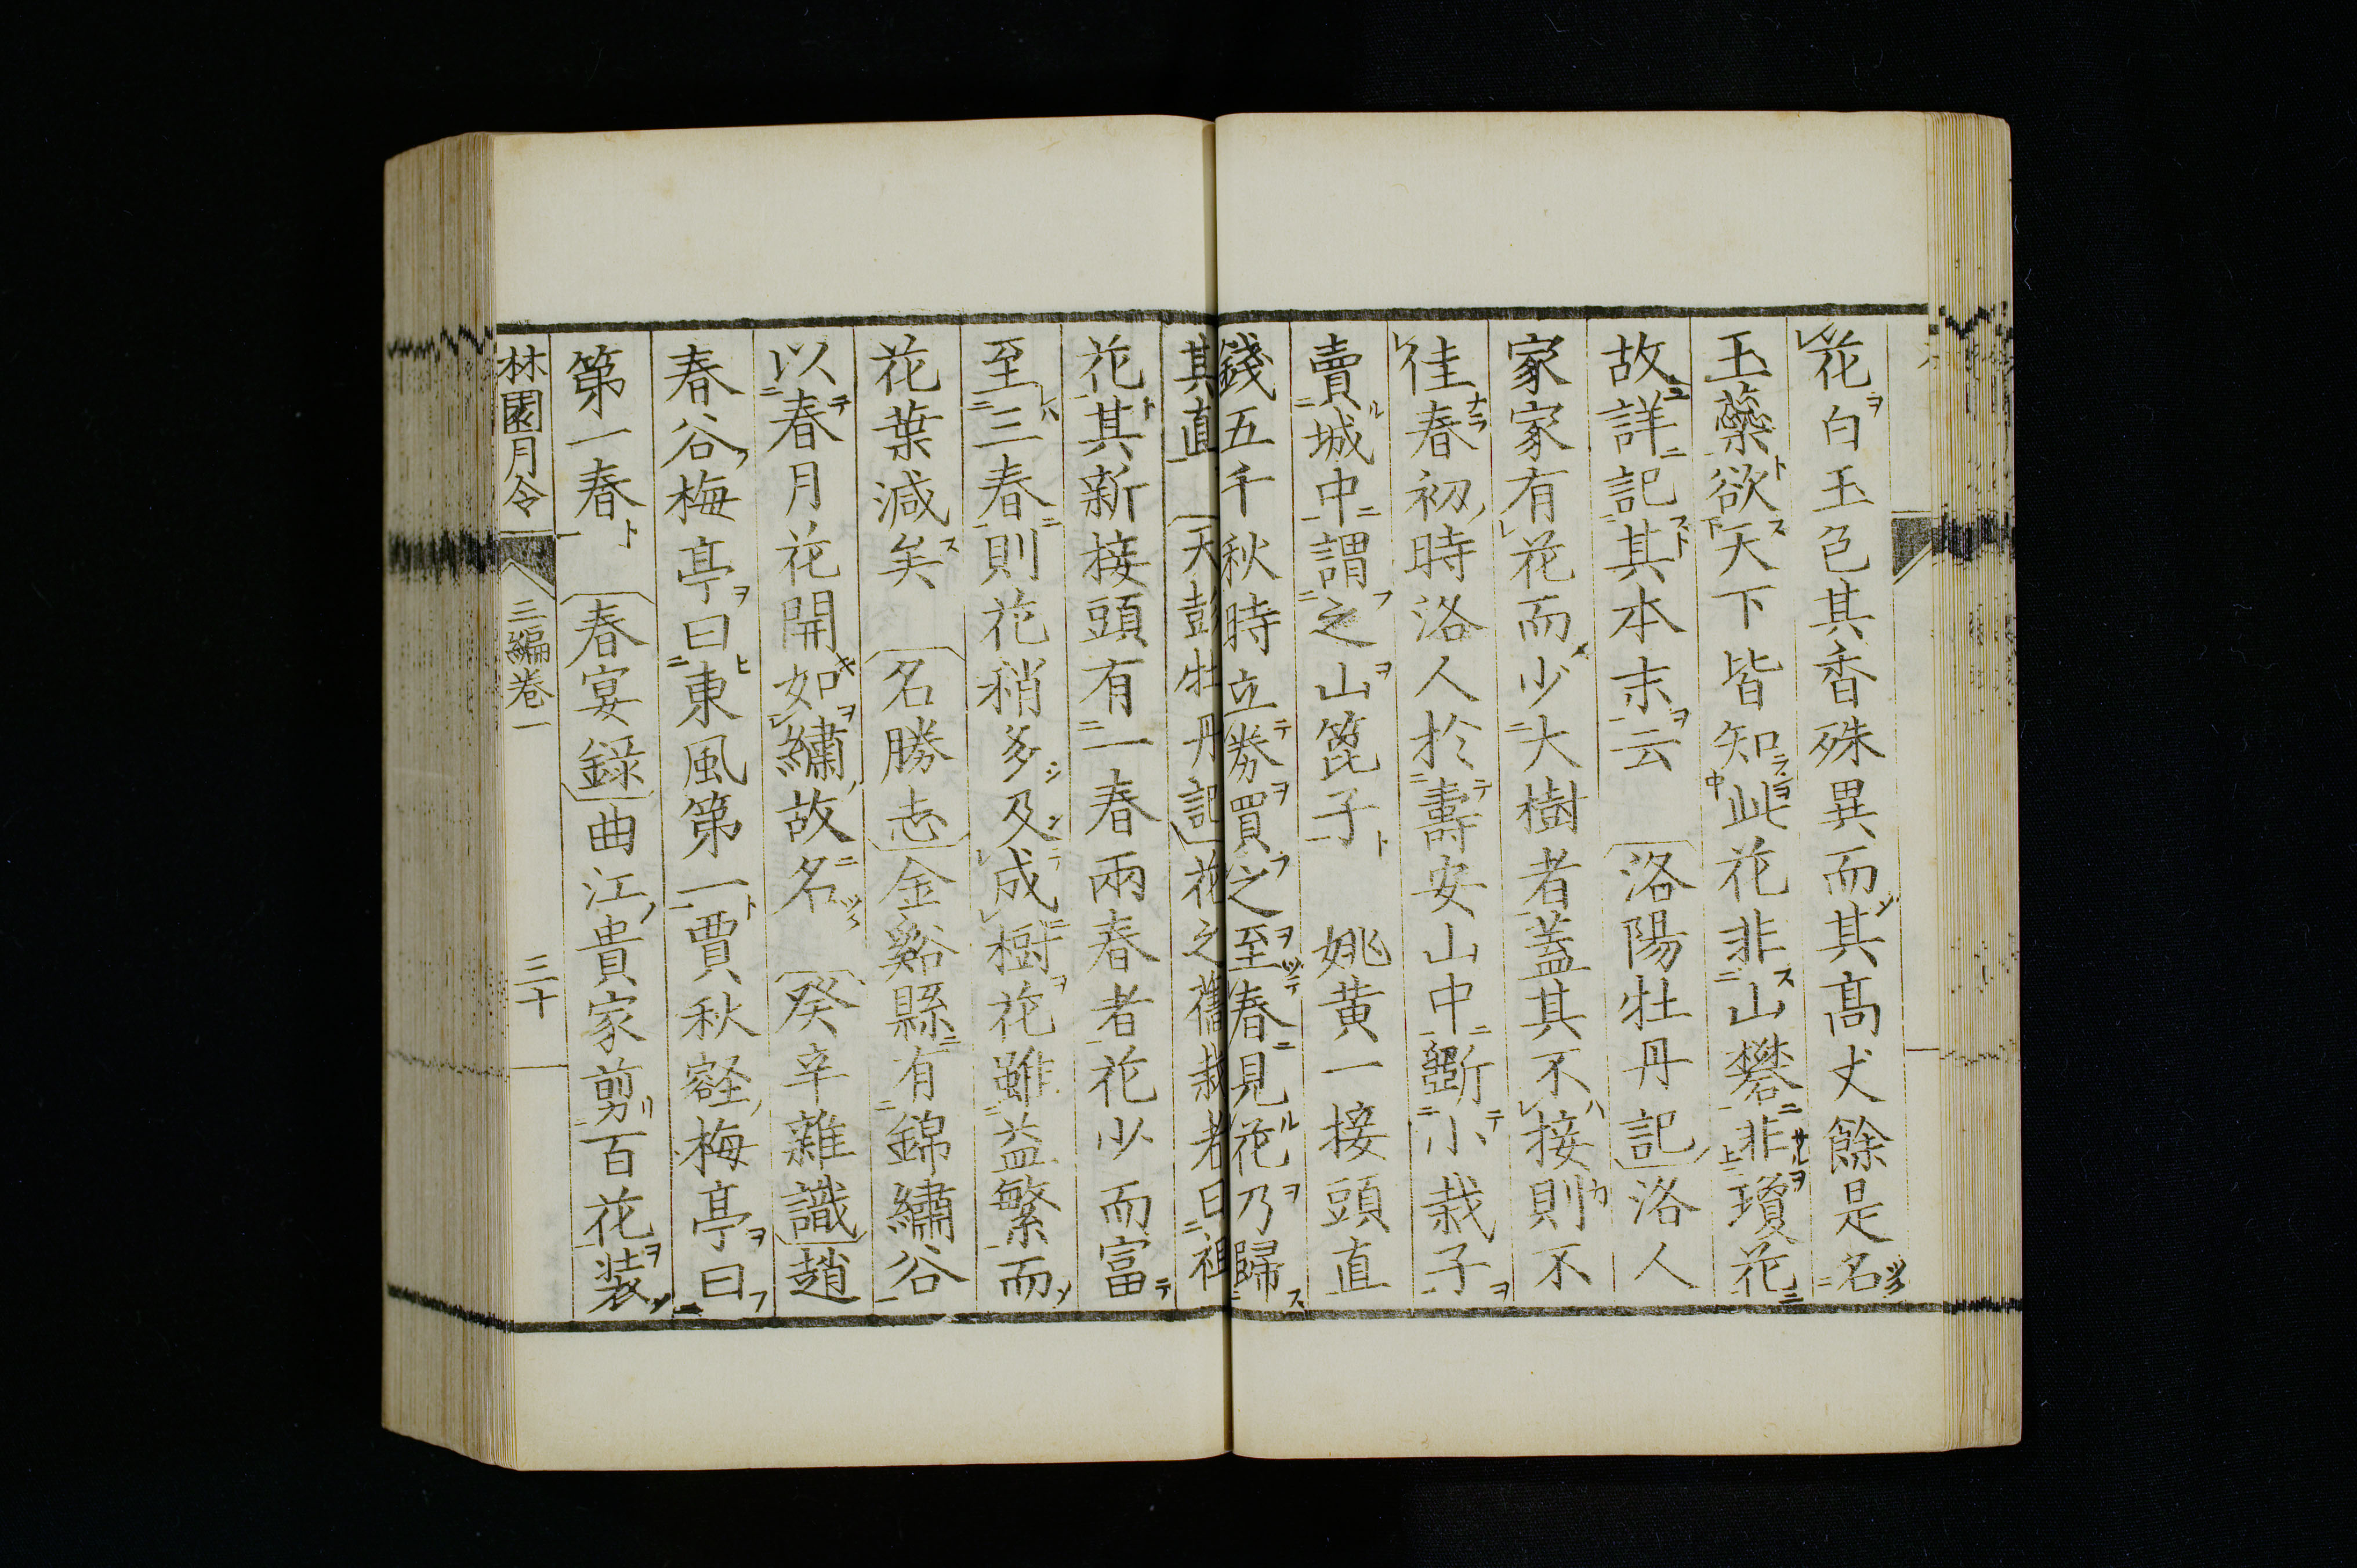 花白玉色其香殊異而其高丈餘是名
玉蘂欲天下皆知此花非山礬非瓊花
故詳記其本末云 〔洛陽牡丹記〕洛人
家家有花而少大樹者蓋其不接則不
佳春初時洛人於壽安山中斲小栽子
賣城中謂之山篦子 姚黄一接頭直
錢五千秋時立劵買之至春見花乃歸
其直 〔天彭牡丹記〕花之舊栽者曰祖
花其新接頭有一春兩春者花少而富
至三春則花稍多及成樹花雖益繁而
花葉減矣 〔名勝志〕金谿縣有錦繡谷
以春月花開如繡故名 〔癸辛雜識〕趙
春谷梅亭曰東風第一賈秋壑梅亭曰
第一春 〔春宴録〕曲江貴家剪百花装
林園月令 三編卷一 三十